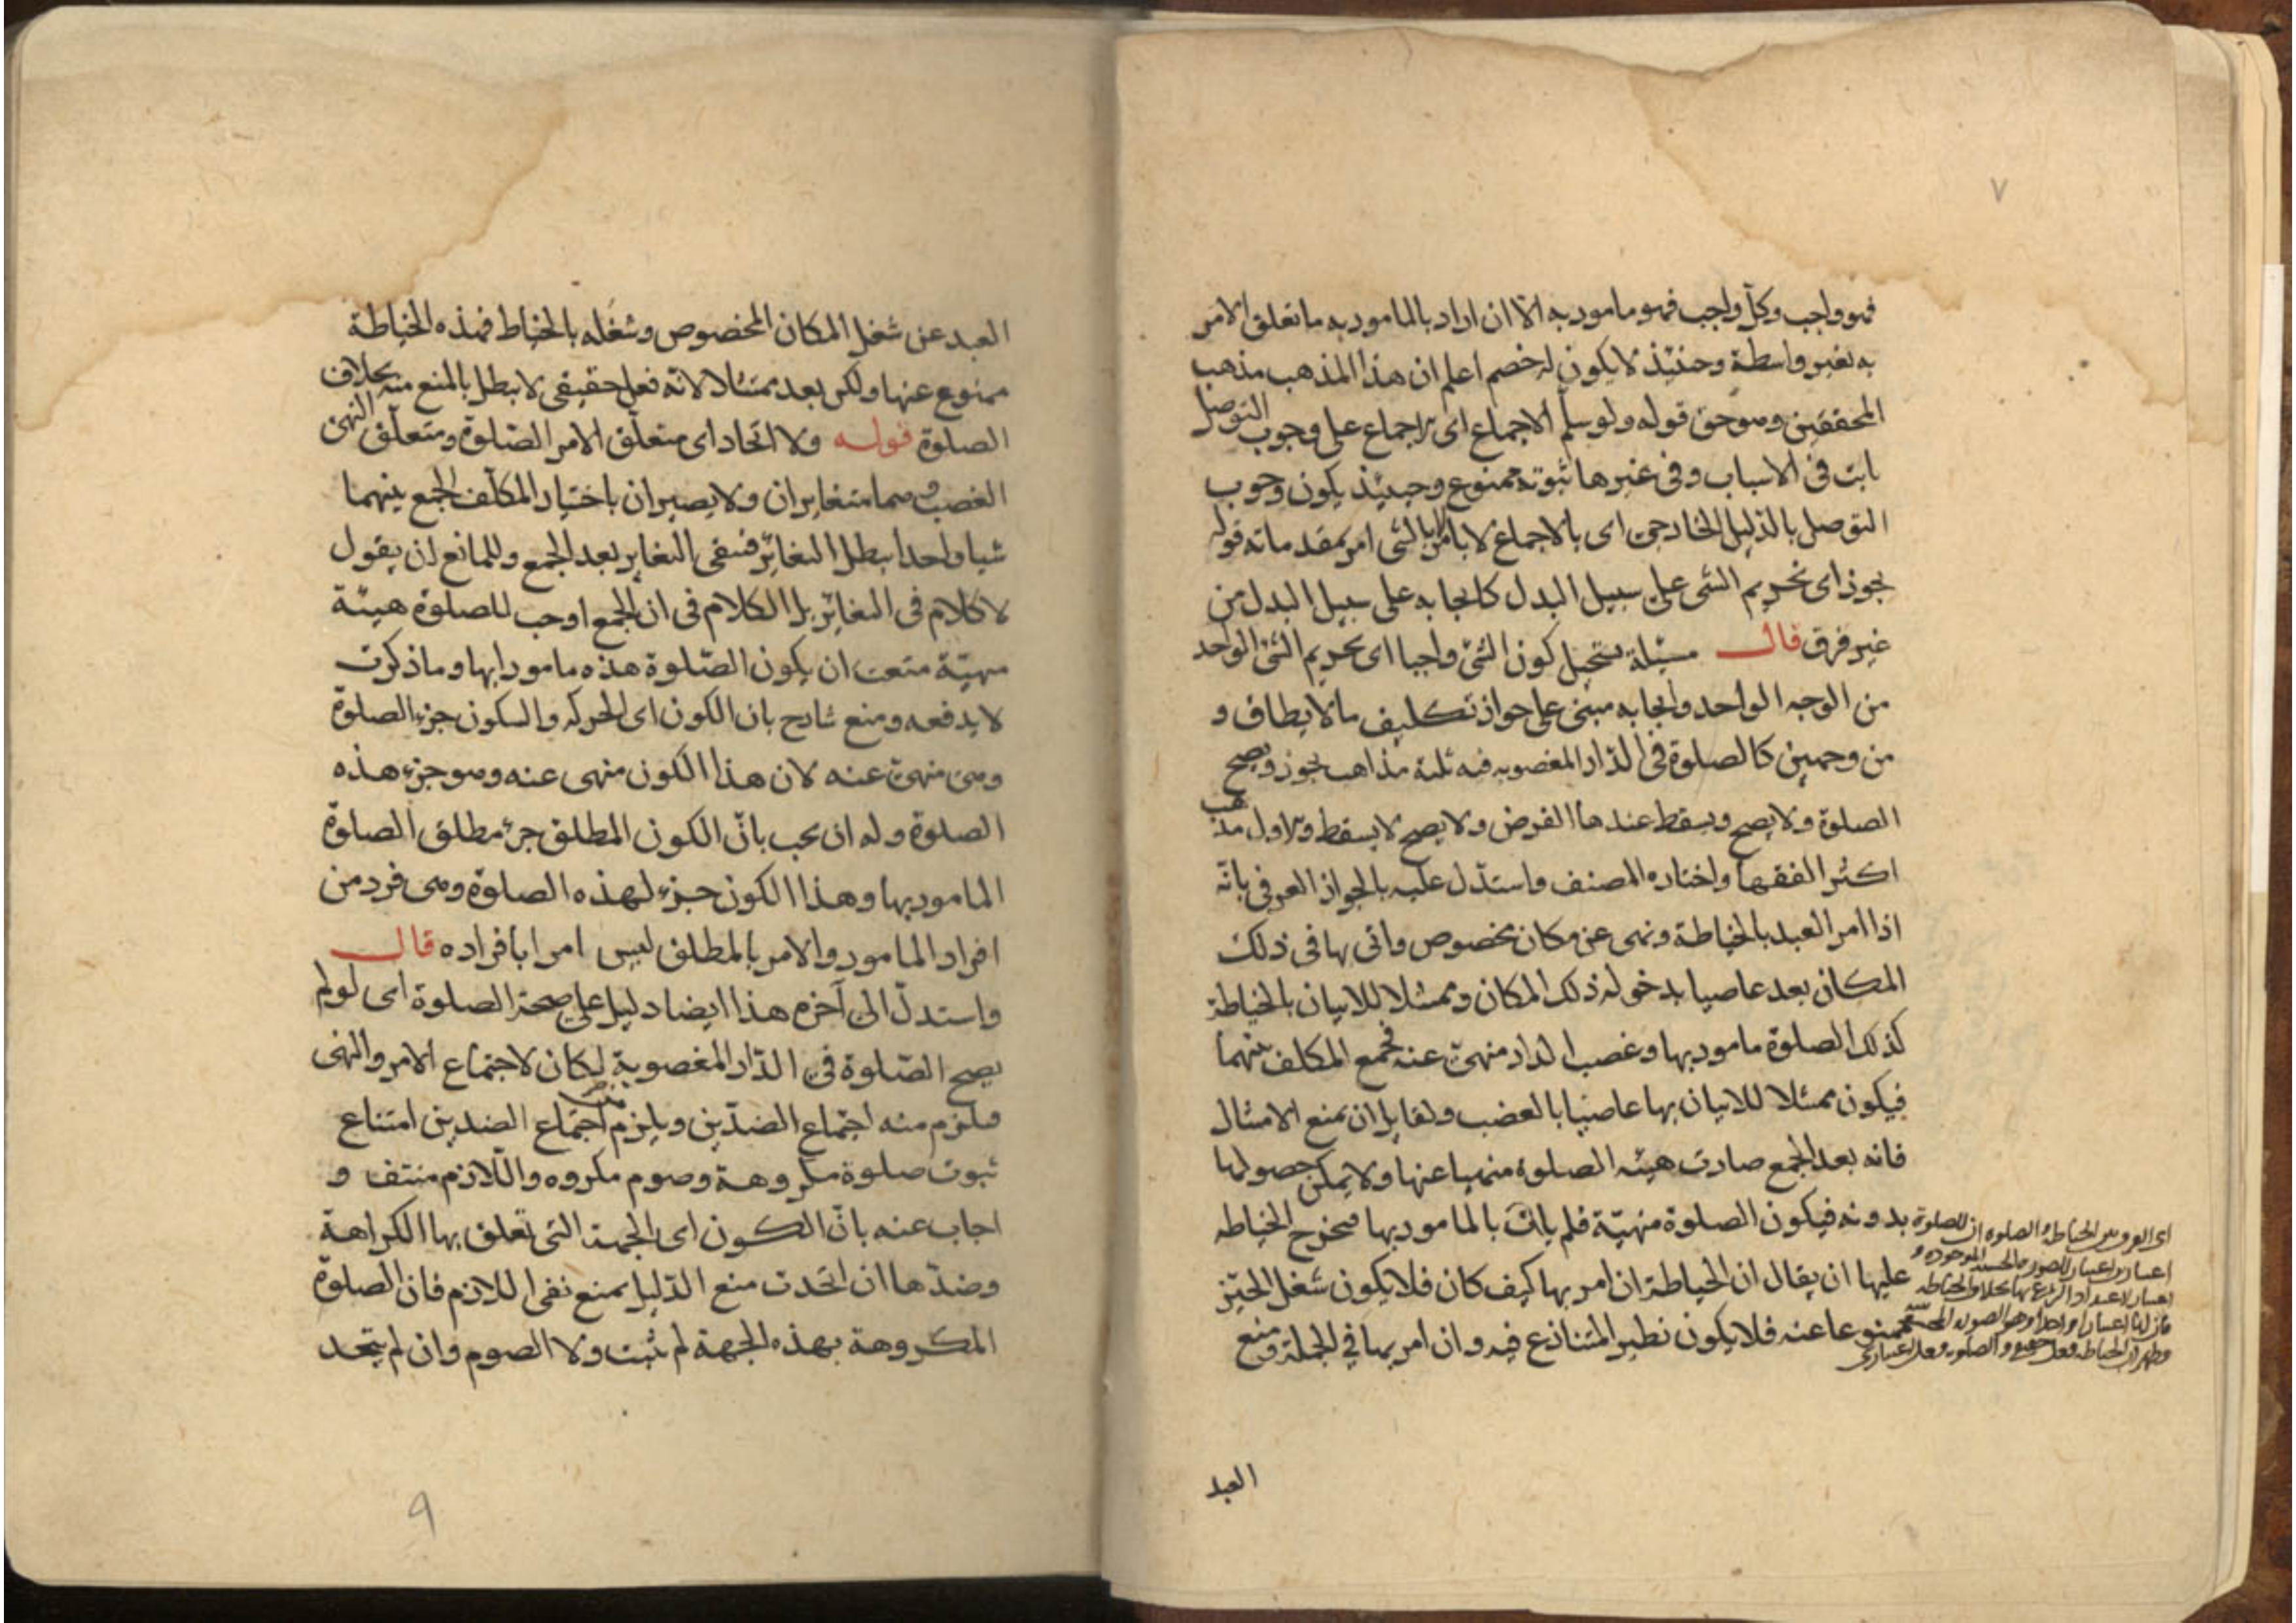 ٧
فهو واجب وكل واجب فهو مامور به الا ان اراد بالمامور به ما تعلق الامر
به بغير واسطة وحنئيذ لا يكون له خصم اعلم ان هذا المذهب مذهب
المحققين وهو حق قوله ولو سلم الاجماع اى الاجماع على وجوب التوصل
ثابت فى الاسباب وفى غيرها ثبوته ممنوع وحينئذ يكون وجوب
التوصل بالدليل الخارجى اى بالاجماع لا بالامر بالشى امر بمقدماته قوله
يجوز اى تحريم الشى على سبيل البدل كايجابه على سبيل البدل من
غير فرق قال مسئلة يستحيل كون الشئ واجبا اى تحريم الشئ الواحد
من الوجه الواحد وايجابه مبنى على جواز تكليف ما لا يطاق و
من وجهين كالصلوة فى الدار المغصوبه فيه ثلثة مذاهب يجوز ويصح
الصلوة ولا يصح ويسقط عندها الفرض ولا يصح لا يسقط والاول مذهب
اكثر الفقها واختاره المصنف واستدل عليه بالجواز العرفى بانه
اذا امر العبد بالخياطة ونهى عن مكان مخصوص واتى بها فى ذلك
المكان يعد عاصيا بدخوله ذلك المكان وممتثلا للاتيان بالخياطة
كذلك الصلوة مامور بها وغصب الدار منهى عنه فجمع المكلف بينهما
فيكون ممتثلا للاتيان بها عاصيا بالغصب ولقايل ان يمنع الامتثال
فانه بعد الجمع صارت هيئه الصلوة منهيا عنها ولا يمكن حصولها
بدونه فيكون الصلوة منهية فلم يات بالمامور بها فيخرج الخياطه
عليها ان يقال ان الخياطة ان امر بها كيف كان فلا يكون شغل الحيز
ممنوعا عنه فلا يكون نظير المتنازع فيه وان امر بها في الجملة ومنع
اى الفرق بين الخياطة والصلوه ان للصلوة
اعتبارين اعتبار الصوره الحسيه الموجوده و
اعتبار لاعتداد الشرع بها بخلاف الخياطه
فان لها اعتبارا واحدا وهو الصوره الحسيه
وظهر ان الخياطه فعل حقيقى والصلوه فعل اعتبارى
العبد
العبد عن شغل المكان المخصوص وشغله بالخياط فهذه الخياطة
ممنوع عنها ولكن يعد ممتثلا لانه فعل حقيقى لا يبطل بالمنع منه بخلاف
الصلوة قوله ولا اتحاد اى متعلق الامر الصلوة ومتعلق النهى
الغصب وهما متغايران ولا يصيران باختيار المكلف الجمع بينهما
شيا واحدا يبطل التغاير فبقى التغاير بعد الجمع وللمانع ان يقول
لا كلام فى التغاير بل الكلام فى ان الجمع اوجب للصلوة هيئة
منهية منعت ان يكون الصلوة هذه مامورا بها وما ذكرت
لا يدفعه ومنع شارح بان الكون اى الحركه والسكون جزء الصلوة
وهى منهى عنه لان هذا الكون منهى عنه وهو جزء هذه
الصلوة وله ان يجيب بان الكون المطلق جزء مطلق الصلوة
المامور بها وهذا الكون جزء لهذه الصلوة وهى فرد من
افراد المامور والامر بالمطلق ليس امرا بافراده قال
واستدل الى آخره هذا ايضا دليل على صحة الصلوة اى لو لم
يصح الصلوة فى الدار المغصوبة لكان لاجتماع الامر والنهى
فيلزم منه اجتماع الضدين ويلزم اجتماع الضدين امتناع
ثبوت صلوة مكروهة وصوم مكروه واللازم منتف و
اجاب عنه بان الكون اى الجهة التى تعلق بها الكراهة
وضدها ان اتحدت منع الدليل بمنع نفى اللازم فان الصلوة
المكروهة بهذه الجهة لم تثبت ولا الصوم وان لم يتحد
٩